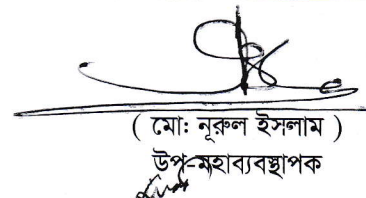 ( মোঃ নূরুল ইসলাম )
উপ-মহাব্যবস্থাপক